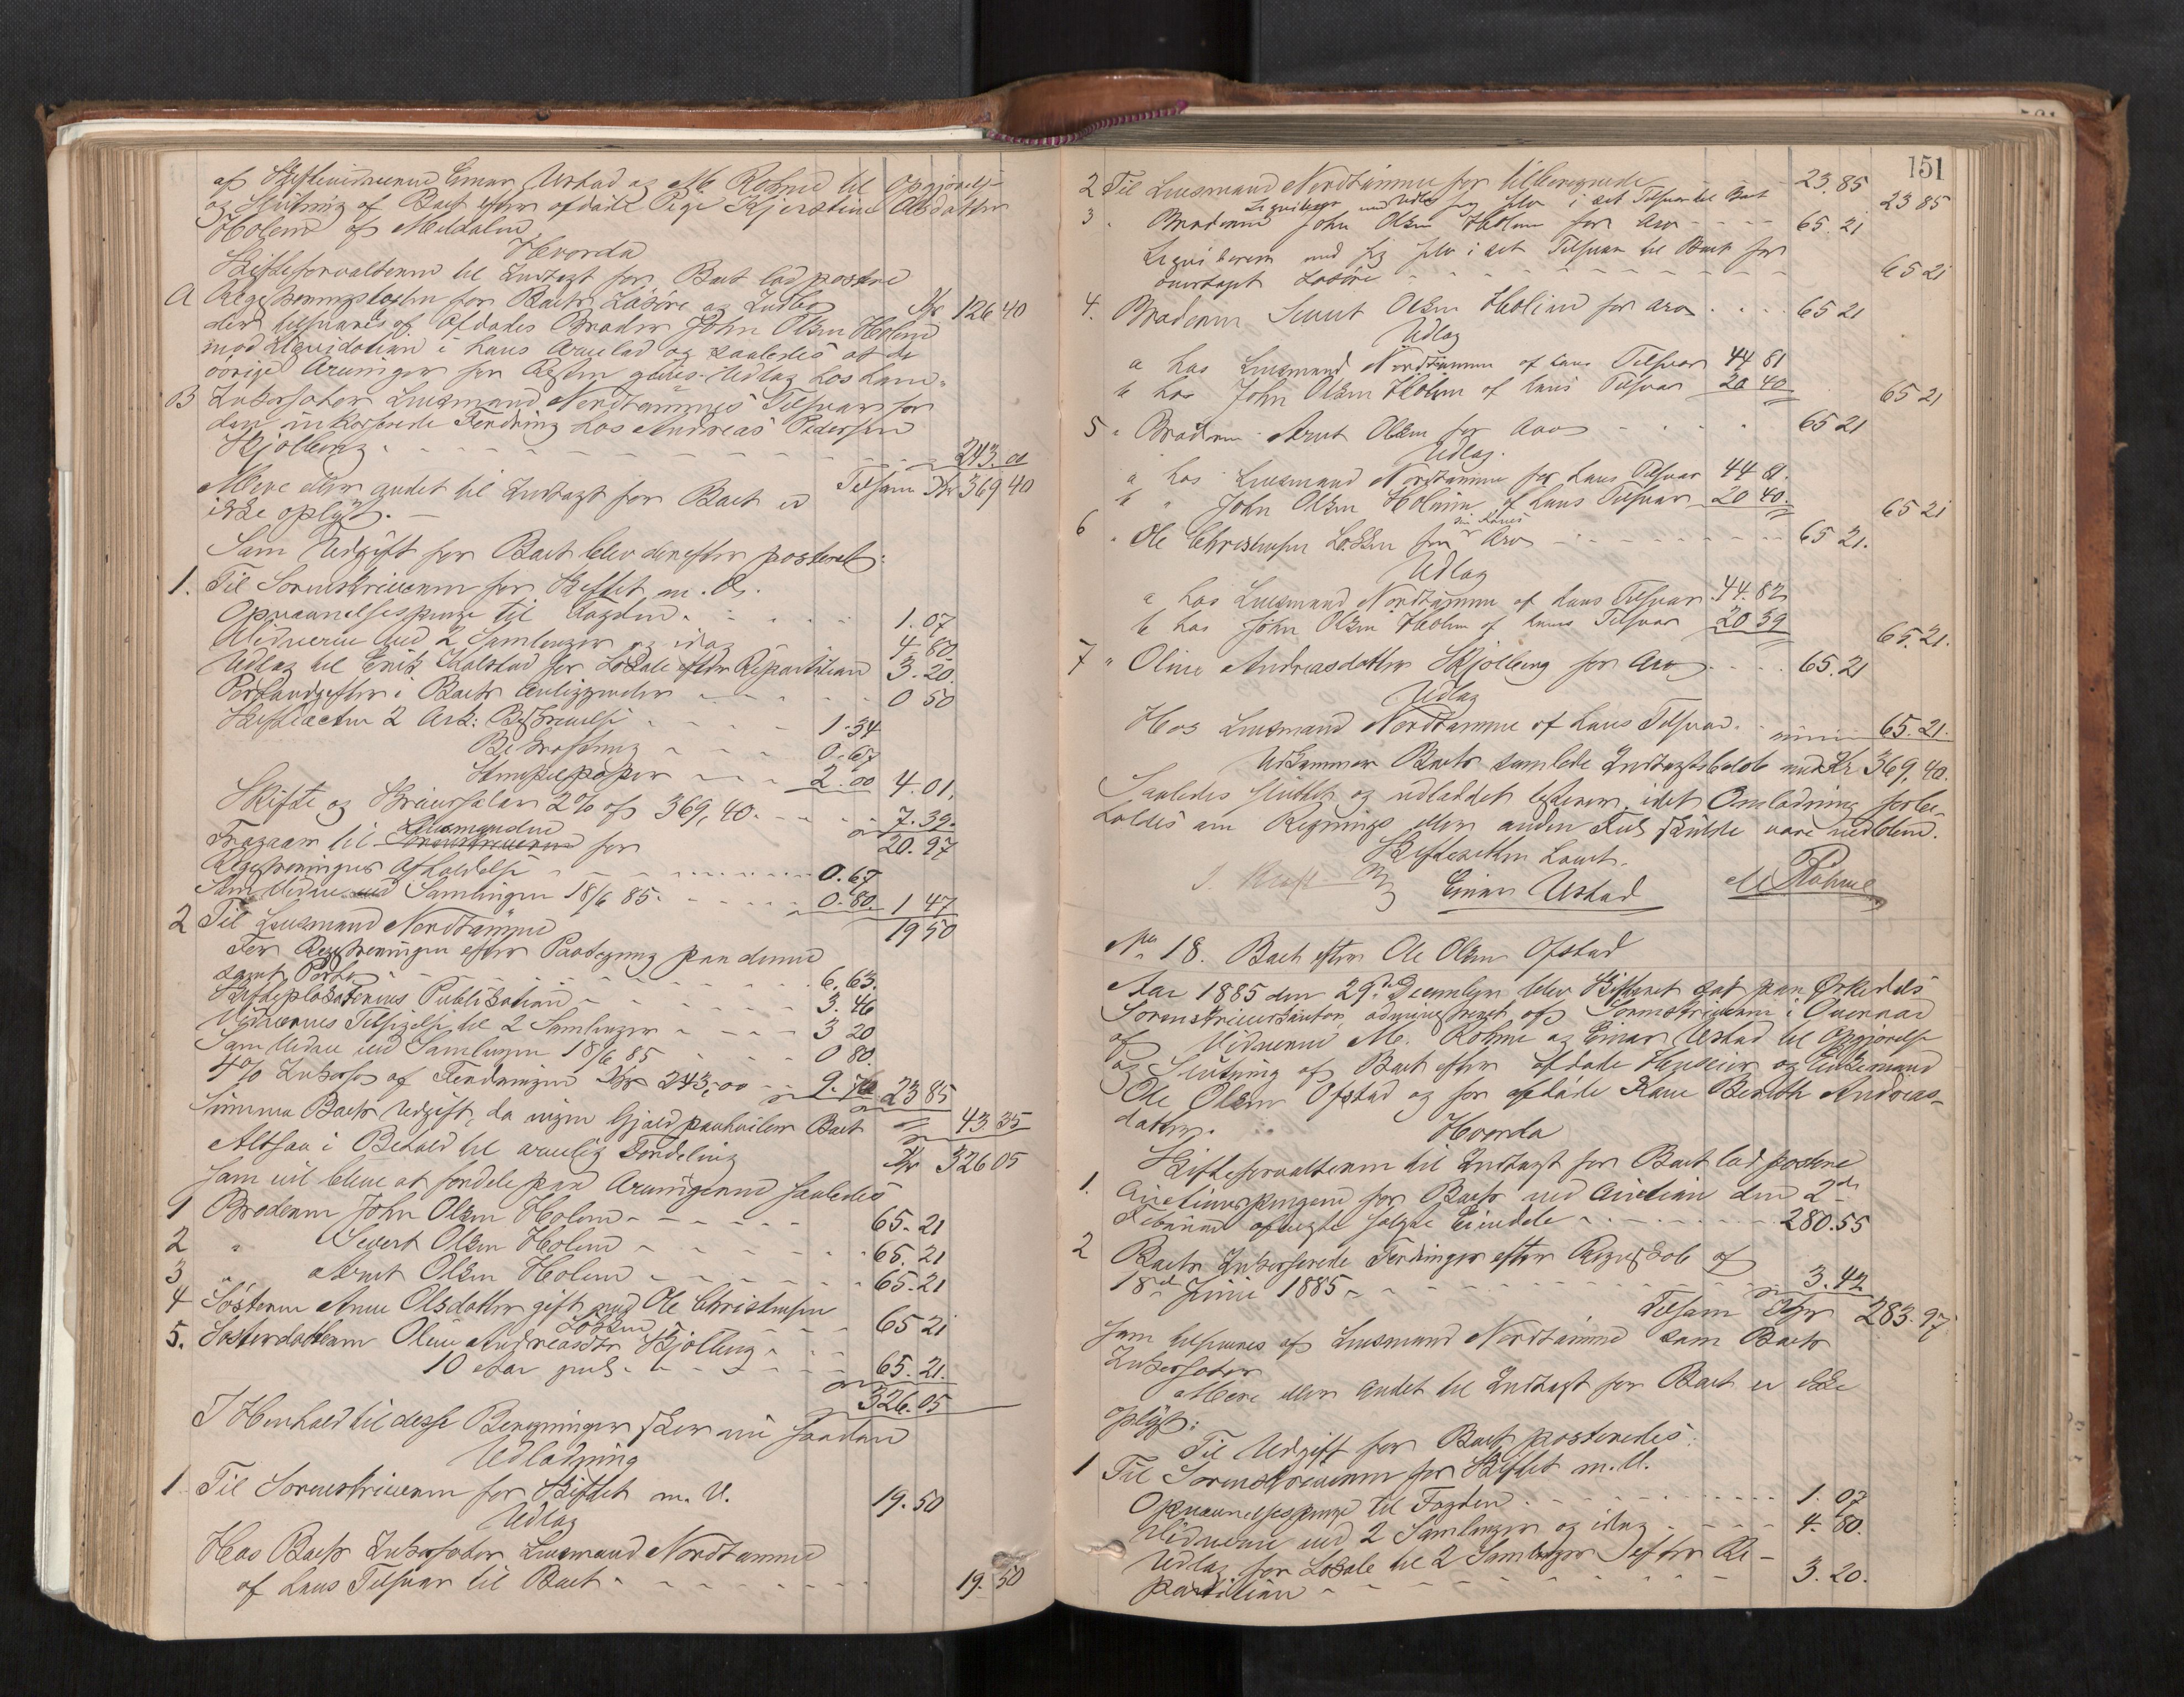 af Skiftevidnerne Einar Ustad og M. Rohme til Opgjørelse
og Slutning af Boet efter afdøde Pige Kjerstine Olsdatter
Holem af Meldalen
Hvorda
Skifteforvalteren til Indtægt for Boet lod postere
A Registreringsbeløb for Boets Løsøre og Indbo Kr 126 40
der tilsvares af Afdødes Broder John Olsen Holem
mod Liqvidation i hans Arvelod og saaledes at de
øvrige Arvinger for Resten gives Udlæg hos ham
B Inkassator Lensmand Nordtømmes Tilsvar for
den inkasserede Fordring hos Andreas Pedersen
Skjølberg 243.00
Tilsam Kr 369 40
Mere eller andet til Indtægt for Boet er
ikke oplyst.
Som Udgift for Boet blev derefter posteret:
1. Til Sorenskriveren for Skiftet m. V.
Opnævnelsespenge til Fogden 1.07
Vidnerne ved 2 Samlinger og idag 4 80
Udlæg til Erik Kalstad for Lokale efter Repartition 3.20
Portoudgifter i Boets Anliggender 0 50
Skifteacten 2 Ark: Beskrivelse 1.34
Bekræftning 0.67
Stempelpapir 2.00 4.01.
Skifte og Skriversalær 2% af 369,40 7.39.
20.97
Fragaar til Lensmanden for
Registreringens Afholdelse 0.67
Som Vidne ved Samlingen 18/6 85 0.80 1 47
19 50
2 Til Lensmand Nordtømme
For Registreringen efter Paategning paa denne
samt Porto 6.63.
Skifteplakaternes Publikation 3.46
Vidnernes Tilsigelse til 2 Samlinger 3 20
Som Vidne ved Samlingen 18/6 85 0 80
4% Inkasso af Fordringen Kr 243,00 9.76 23 85
Summa Boets Udgift, da ingen Gjæld paahviler Boet 43 35
Altsaa i Behold til arvelig Fordeling Kr 326 05
som vil blive at fordele paa Arvingerne saaledes
1 Broderen John Olsen Holem 65.21
2 " Sivert Olsen Holem 65.21
3 " Arnt Olsen Holem 65.21
4 Søsteren Anne Olsdatter gift med Ole Christensen
Løkken 65 21
5. Søsterdatteren Oline Andreasdtr Skjølberg
10 Aar gml. 65.21.
326.05
I Henhold til disse Beregninger sker nu saadan
Udlodning
1 Til Sorenskriveren for Skiftet m. V. 19.50
Udlæg
Hos Boets Inkassator Lensmand Nordtømme
af hans Tilsvar til Boet 19.50
151
2 Til Lensmand Nordtømme for tilberegnede 23.85
Liqvideres med Udlæg sig selv i det Tilsvar til Boet 23 85
3 " Broderen John Olsen Holem for Arv 65.21
Liqvideres med sig selv i det Tilsvar til Boet for
overtaget Løsøre 65 21
4. Broderen Sivert Olsen Holem for Arv 65 21
Udlæg
a hos Lensmand Nordtømme af hans Tilsvar 44 81
b hos John Olsen Holem af hans Tilsvar 20 40 65 21
5 " Broderen Arnt Olsen for Arv 65 21
Udlæg.
a hos Lensmand Nordtømme for hans Tilsvar 44 81.
b " John Olsen Holem af hans Tilsvar 20 40. 65 21
6 " Ole Christensen Løkken for sin Kones Arv 65 21.
Udlæg
a hos Lensmand Nordtømme af hans Tilsvar 44.82
b hos John Olsen Holem af hans Tilsvar 20 39 65.21.
7 " Oline Andreasdatter Skjølberg for Arv 65.21
Udlæg
Hos Lensmand Nordtømme af hans Tilsvar 65.21.
Udkommer Boets samlede Indtægtsbeløb med Kr 369,40.
Saaledes sluttet og udloddet extraderes, idet Omlodning forbe-
holdes om Regnings eller anden Feil skulde være indløben.
Skifteretten hævet.
Einar Ustad M Rohme
No 18. Boet efter Ole Olsen Ofstad
Aar 1885 den 29de December blev Skifteret sat paa Orkedals
Sorenskriverkontor, administreret af Sorenskriveren i Overvær
af Vidnerne M. Rohme og Einar Ustad til Opgjørelse
og Slutning af Boet efter afdøde Husmand og Enkemand
Ole Olsen Ofstad og før afdøde Kone Bereth Andreas-
datter.
Hvorda
Skifteforvalteren til Indtægt for Boet lod postere
1. Auctionspengene for Boets ved Auction den 2den
Februar solgte Eiendele 280.55
2 Boets Inkasserede Fordringer efter Regnskab af
18de Juni 1885 3.42
Tilsam Kr 283.97
som tilsvares af Lensmand Nordtømme som Boets
Inkassator
Mere eller andet til Indtægt for Boet er ikke
oplyst:
Til Udgift for Boet posteredes:
1 Til Sorenskriveren for Skiftet m. V.
Opnævnelsespenge til Fogden 1.07
Vidnerne ved 2 Samlinger og idag 4.80.
Udlæg for Lokale til 2 Samlinger efter Re-
partition 3.20.